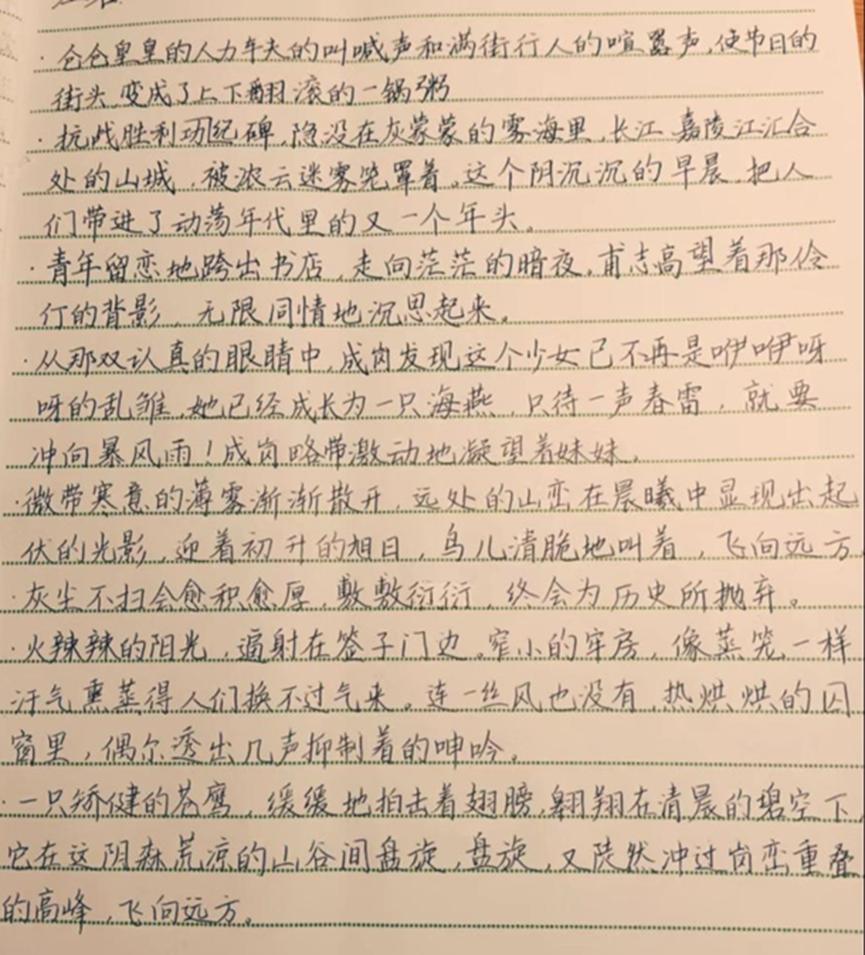 ·仓仓皇皇的人力车夫的叫喊声和满街行人的喧嚣声,使节日的
街头变成了上下翻滚的一锅粥
·抗战胜利功纪碑,隐没在灰蒙蒙的雾海里,长江嘉陵江汇合
处的山城,被浓云迷雾笼罩着。这个阴沉沉的早晨,把人
们带进了动荡年代里的又一个年头。
·青年留恋地跨出书店,走向茫茫的暗夜。甫志高望着那伶
仃的背影,无限同情地沉思起来。
·从那双认真的眼睛中,成岗发现这个少女已不再是咿咿呀
呀的乱雏,她已经成长为一只海燕,只待一声春雷,就要
冲向暴风雨!成岗略带激动地凝望着妹妹,
·微带寒意的薄雾渐渐散开,远处的山峦在晨曦中显现出起
伏的光影,迎着初升的旭日,鸟儿清脆地叫着,飞向远方,
·灰尘不扫会愈积愈厚,敷敷衍衍,终会为历史所抛弃。
·火辣辣的阳光,逼射在签子门边。窄小的牢房,像蒸笼一样
汗气熏蒸得人们换不过气来。连一丝风也没有,热烘烘的囚
窗里,偶尔透出几声抑制着的呻吟。
·一只矫健的苍鹰,缓缓地拍击着翅膀,翱翔在清晨的碧空下,
它在这阴森荒凉的山谷间盘旋,盘旋,又陡然冲过岗峦重叠
的高峰,飞向远方。